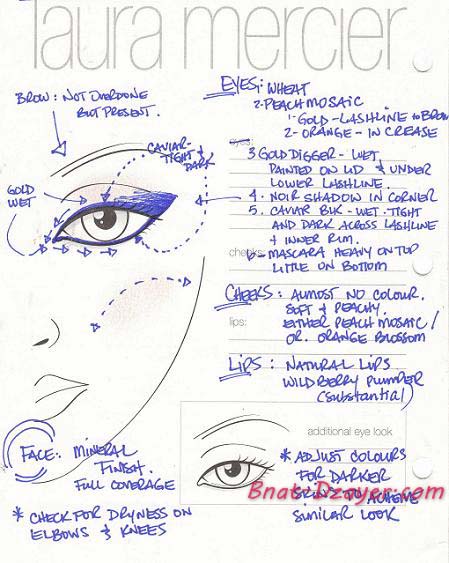 laura mercier
BROW: NOT OVERDONE
BUT PRESENT.
CAVIAR-
TIGHT &
DARK
GOLD
WET
EYES: 1. WHEAT
2. PEACH MOSAIC
1- GOLD - LASHLINE to BROW
2- ORANGE - IN CREASE
eyes:
3 GOLD DIGGER - WET
PAINTED ON LID & UNDER
LOWER LASHLINE.
4. NOIR SHADOW IN CORNER
5. CAVIAR BLK - WET. TIGHT
AND DARK ACROSS LASHLINE
& INNER RIM.
6- MASCARA HEAVY ON TOP
LITTLE ON BOTTOM
cheeks:
CHEEKS: ALMOST NO COLOUR.
SOFT & PEACHY.
lips:
EITHER PEACH MOSAIC /
OR. ORANGE BLOSSOM
LIPS: NATURAL LIPS
WILDBERRY PLUMPER
(substantial)
FACE: MINERAL
FINISH.
FULL COVERAGE
* CHECK FOR DRYNESS ON
ELBOWS & KNEES
additional eye look
* ADJUST COLOURS
FOR DARKER
SKIN TO ACHIEVE
SIMILAR LOOK
Bnat-Dzayer.com